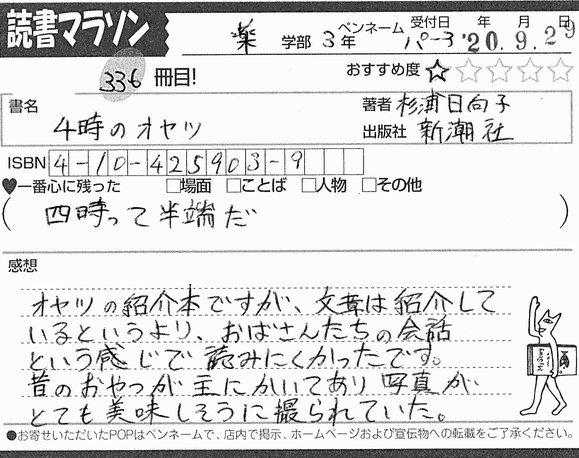 読書マラソン
薬 学部 3年 ペンネーム パーろ 受付日 '20.9.29 年 月 日
336 冊目! おすすめ度 ★☆☆☆☆
書名 4時のオヤツ
著者 杉浦日向子
出版社 新潮社
ISBN 4-10-425903-9
♥一番心に残った □場面 □ことば □人物 □その他
(四時って半端だ)
感想
オヤツの紹介本ですが、文章は紹介して
いるというより、おばさんたちの会話
という感じで読みにくかったです。
昔のおやつが主にかいてあり写真が
とても美味しそうに撮られていた。
●お寄せいただいたPOPはペンネームで、店内で掲示、ホームページおよび宣伝物への転載をご了承ください。